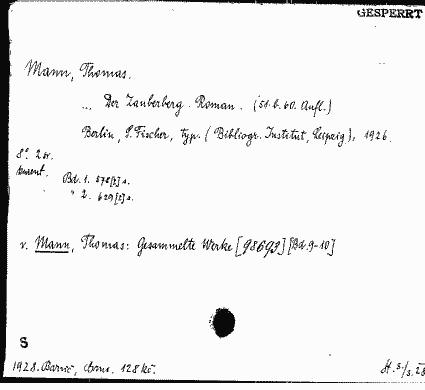 GESPERRT
Mann, Thomas.
... Der Zauberberg. Roman. (51.b.60. Aufl.)
Berlin, S. Fischer, typ. (Bibliogr. Institut, Leipzig), 1926.
8°. 2 sv.
Bd. 1. 578[2] s.
" 2. 629[2] s.
v. Mann, Thomas: Gesammelte Werke [98693] [Bd. 9-10]
S
1928. Barvič, Brno. 128 Kč.